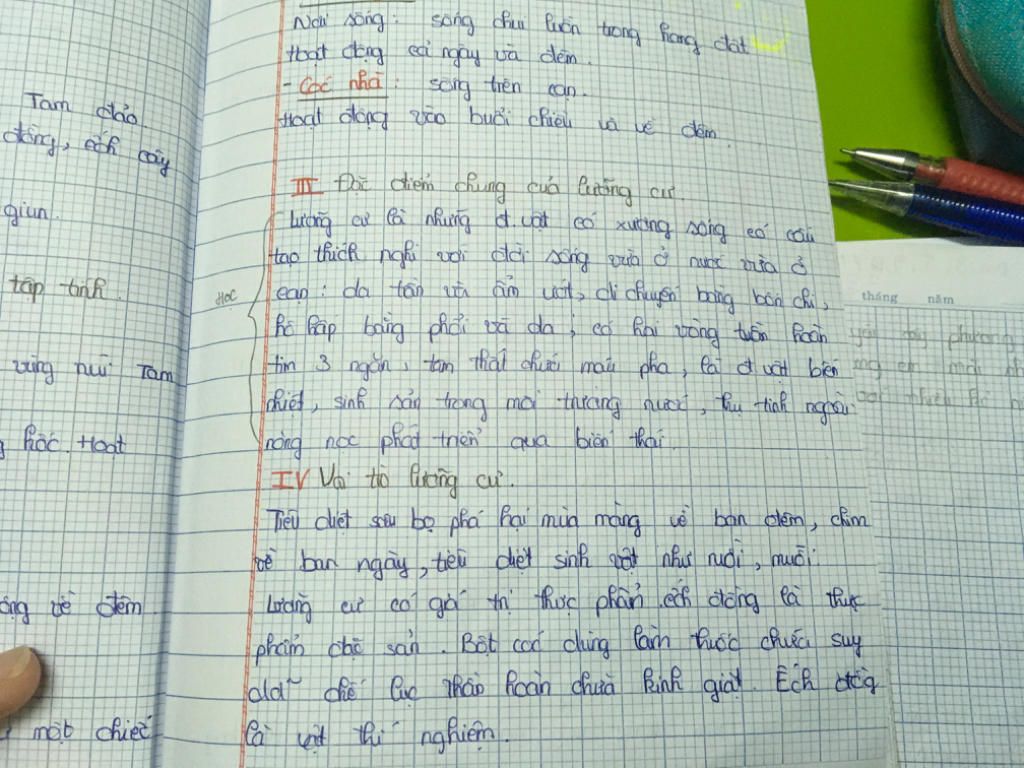 Tam đảo.
đồng, ếch cây
giun.
tập tính.
vùng núi Tam
hốc. Hoạt
động về đêm.
một chiếc
Nơi sống: sống chui luồn trong hang đất
Hoạt động cả ngày và đêm.
- Cóc nhà: sống trên cạn.
Hoạt động vào buổi chiều và về đêm
III Đặc điểm chung của lưỡng cư.
Lưỡng cư là những đ.vật có xương sống có cấu
tạo thích nghi với đời sống vừa ở nước vừa ở
cạn: da trần và ẩm ướt, di chuyển bằng bốn chi,
Học
hô hấp bằng phổi và da, có hai vòng tuần hoàn
tim 3 ngăn, tâm thất chứa máu pha, là đ vật biến
nhiệt, sinh sản trong môi trường nước, thụ tinh ngoài
nòng nọc phát triển qua biến thái.
IV Vai trò lưỡng cư.
Tiêu diệt sâu bọ phá hại mùa màng về ban đêm, chim
về ban ngày, tiêu diệt sinh vật như ruồi, muỗi.
Lưỡng cư có giá trị thực phẩn ếch đồng là thực
phẩm đặc sản. Bột cóc dùng làm thuốc chữa suy
dd~ chế lục thảo hoàn chữa kinh giật. Ếch đồng
là vật thí nghiệm.
tháng năm
phương